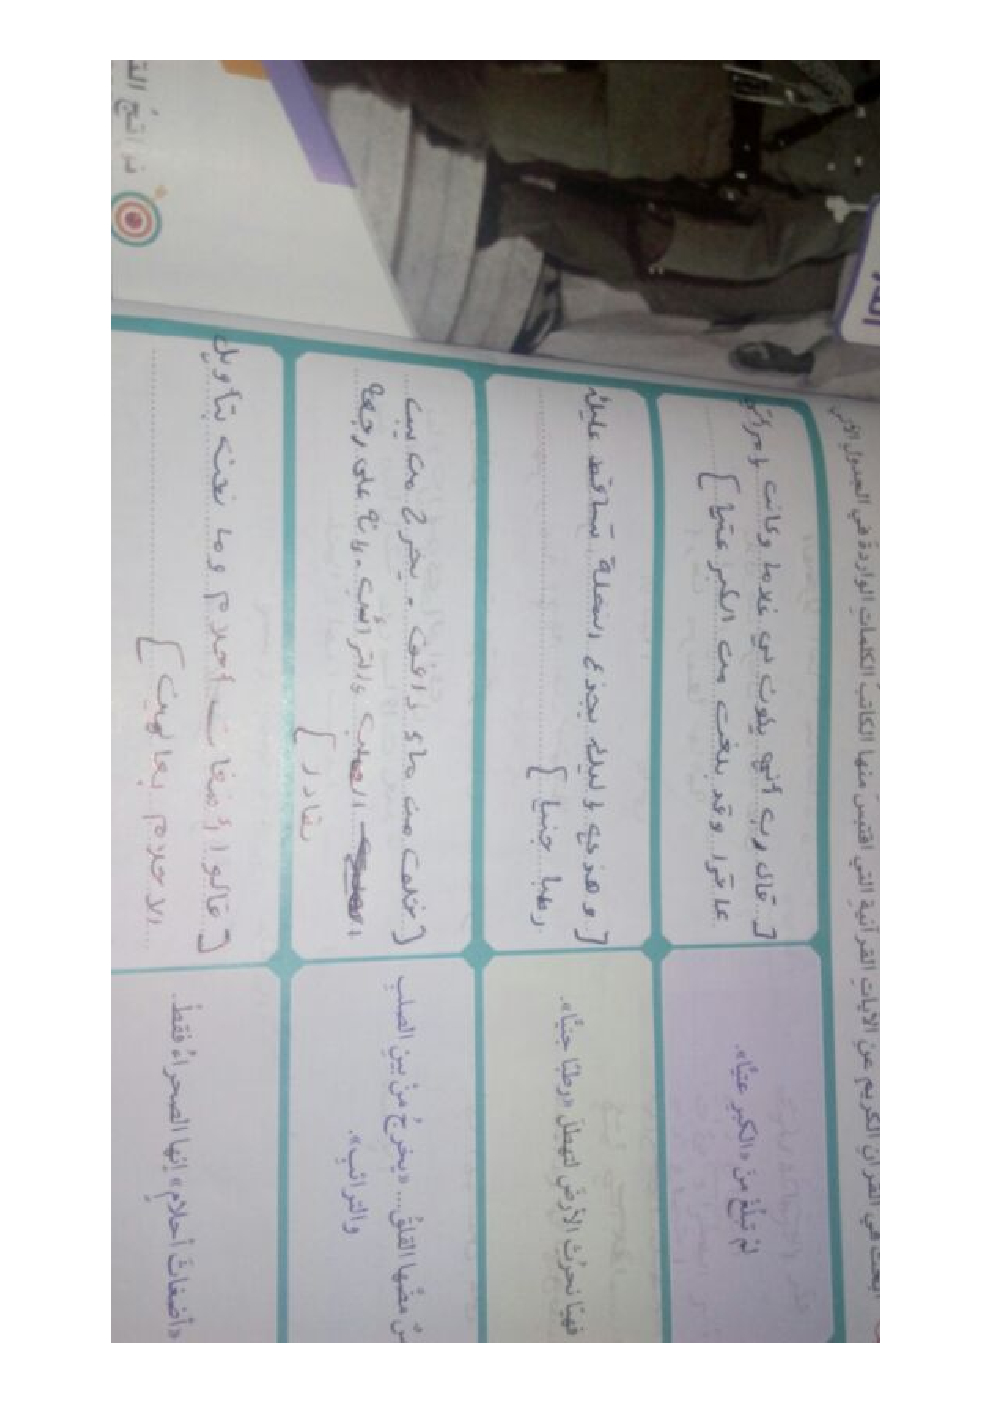 ابحث في القرآن الكريم عن الآيات القرآنية التي اقتبس منها الكاتب الكلمات الواردة في الجدول الآتي
لمْ تبلُغْ منَ «الكِبرِ عتيًّا».
[ قال رب أنى يكون لي غلاما وكانت امرأتي
عاقرا وقد بلغت من الكبر عتيا ]
فهيّا نحرُثِ الأرضَ لتهطلَ «رطبًا جنيًّا».
[ وهزي إليك بجذع النخلة تساقط عليك
رطبا جنيا ]
مصّها القلقُ... «يخرجُ منْ بينِ الصلبِ
والترائبِ».
[ خلق من ماء دافق - يخرج من بين
الصلب والترائب - إنه على رجعه
لقادر ]
«أضغاثُ أحلامٍ» إنها الصحراءُ فقطْ.
[ قالوا أضغاث أحلام وما نحن بتأويل
الاحلام بعالمين ]